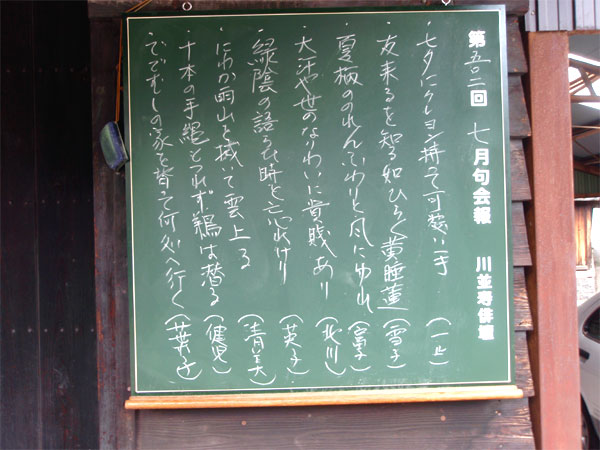 第五〇二回 七月句会報 川並寿俳壇
・七夕にクレヨン持って可愛い手 (一止)
・友来るを知る如ひらく黄睡蓮 (雪子)
・夏柄ののれんふわりと風にゆれ (富子)
・大汗や世のなりわいに貴賎あり (北川)
・緑陰の語るひ時を忘れけり (英子)
・にわか雨山を掃いて雲上る (清美)
・十本の手縄もつれず鵜は潜る (健児)
・ででむしの家を背って何処へ行く (葉子)